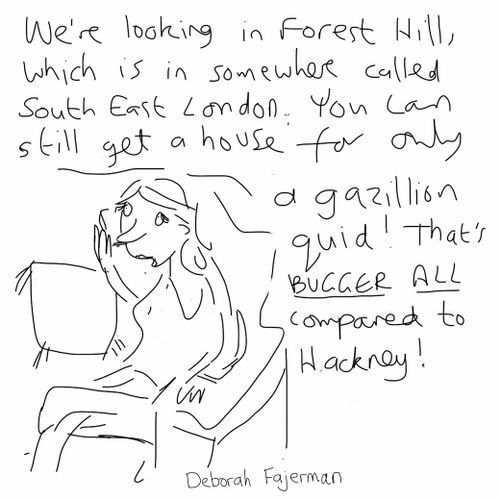 We're looking in Forest Hill,
which is in somewhere called
South East London. You can
still get a house for only
a gazillion
quid! That's
BUGGER ALL
compared to
Hackney!
Deborah Fajerman